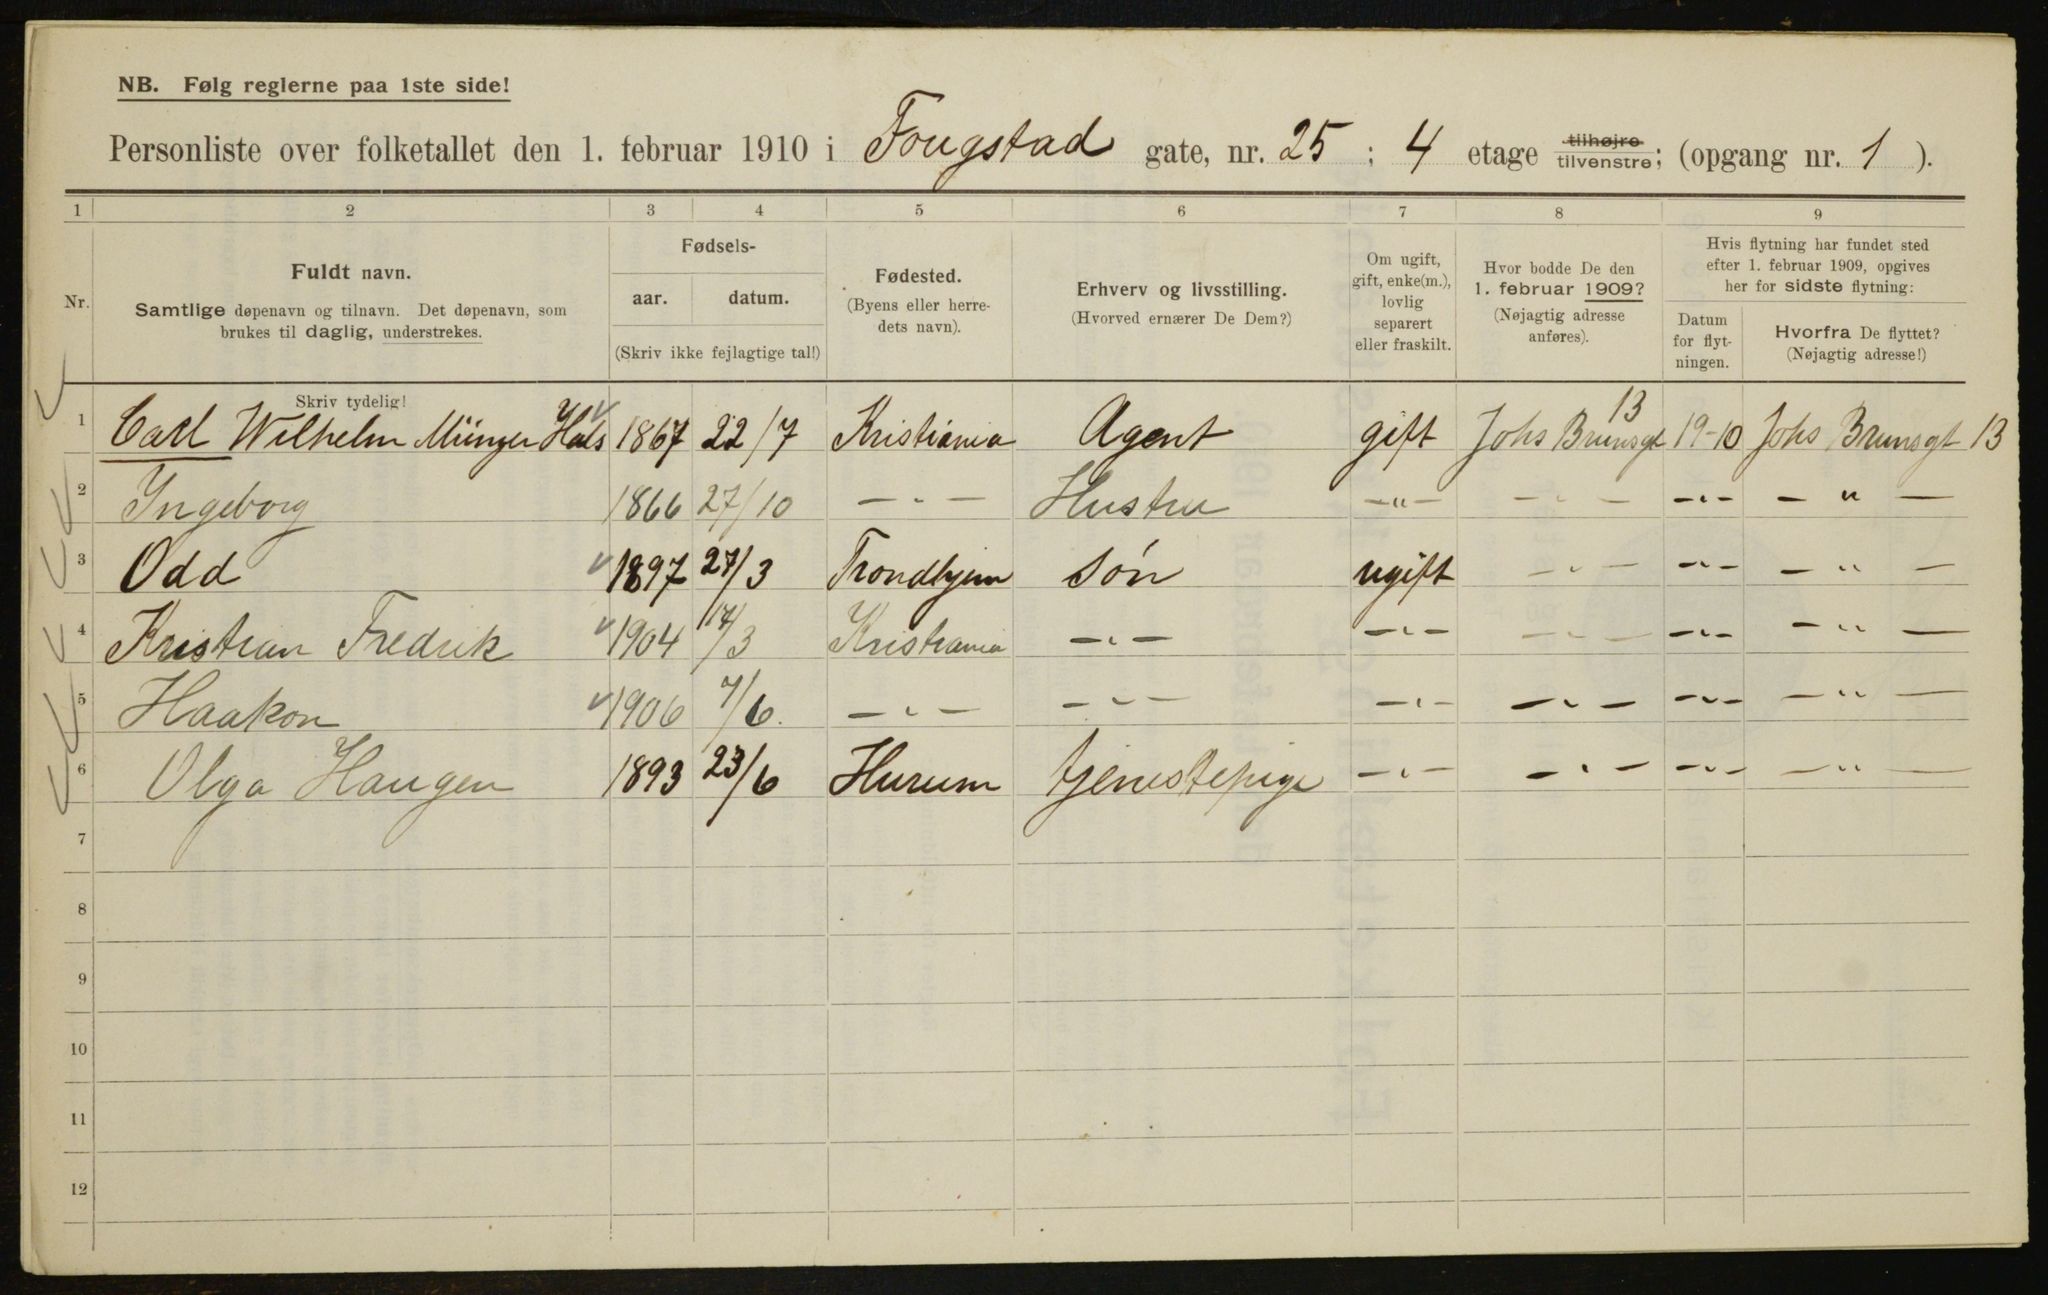 NB. Følg reglerne paa 1ste side!
Personliste over folketallet den 1. februar 1910 i Fougstad gate, nr. 25 ; 4 etage tilhøjre tilvenstre; (opgang nr. 1 ).
1 2 3 4 5 6 7 8 9
Nr.
Fuldt navn.
Samtlige døpenavn og tilnavn. Det døpenavn, som
brukes til daglig, understrekes.
Fødsels-
aar. datum.
(Skriv ikke fejlagtige tal!)
Fødested.
(Byens eller herre-
dets navn).
Erhverv og livsstilling.
(Hvorved ernærer De Dem?)
Om ugift,
gift, enke(m.),
lovlig
separert
eller fraskilt.
Hvor bodde De den
1. februar 1909?
(Nøjagtig adresse
anføres).
Hvis flytning har fundet sted
efter 1. februar 1909, opgives
her for sidste flytning:
Datum
for flyt-
ningen.
Hvorfra De flyttet?
(Nøjagtig adresse!)
Skriv tydelig!
1 Carl Wilhelm Münzer Hals 1867 22/7 Kristiania Agent gift Johs Brunsgt 13 19-10 Johs Brunsgt 13
2 Ingeborg 1866 27/10 — " — Hustru — " — — " — — " — — " —
3 Odd 1897 27/3 Trondhjem søn ugift — " — — " — — " —
4 Kristian Fredrik 1904 17/3 Kristiania — " — — " — — " — — " — — " —
5 Haakon 1906 7/6 — " — — " — — " — — " — — " — — " —
6 Olga Haugen 1893 23/6 Hurum tjenestepige — " — — " — — " — — " —
7
8
9
10
11
12